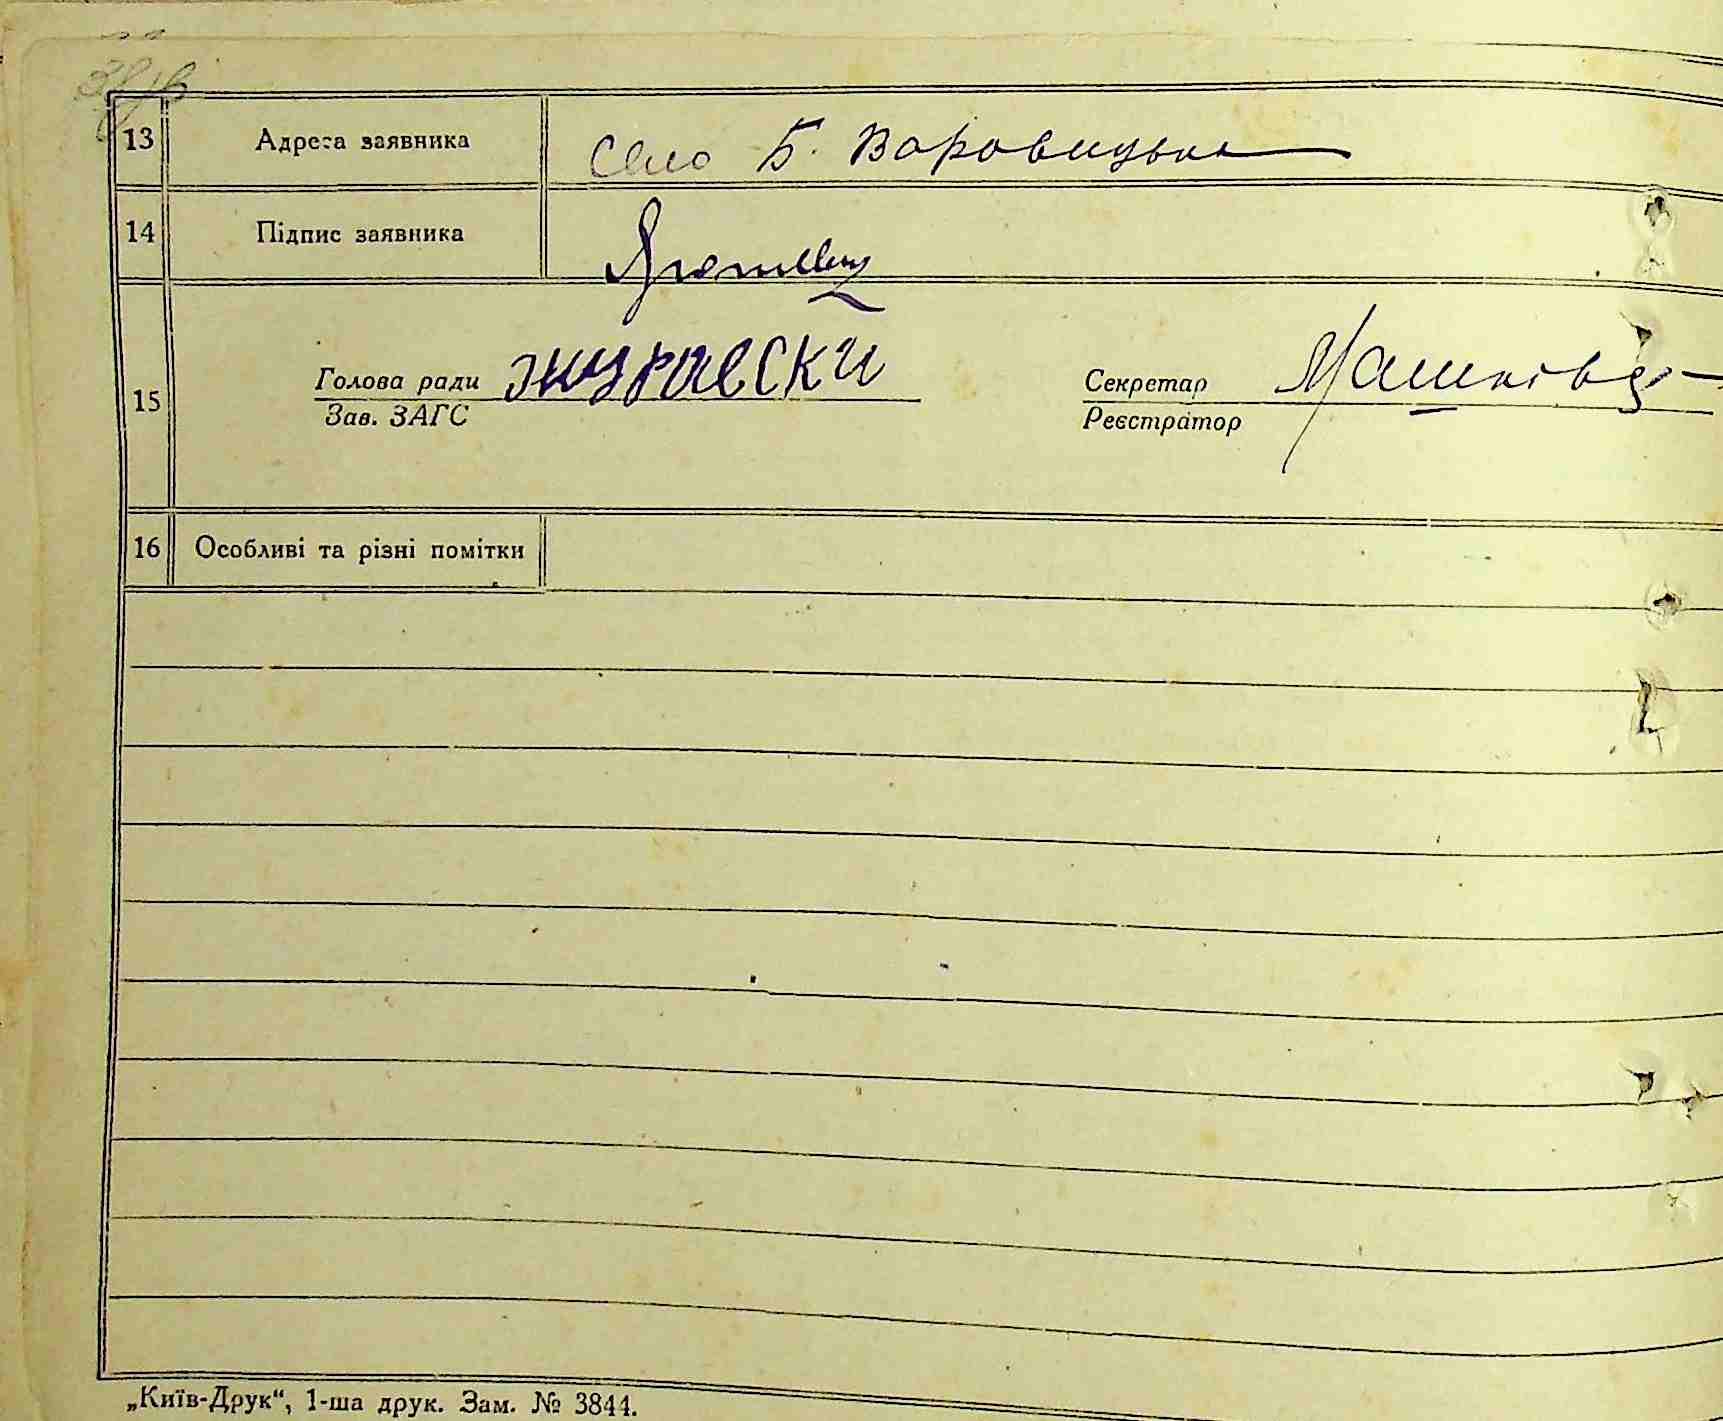 13 Адреса заявника Село Б. Варовицька
14 Підпис заявника
15 Голова ради Журавски Секретар
Зав. ЗАГС Реєстратор
16 Особливі та різні помітки
„Київ-Друк“, 1-ша друк. Зам. № 3844.